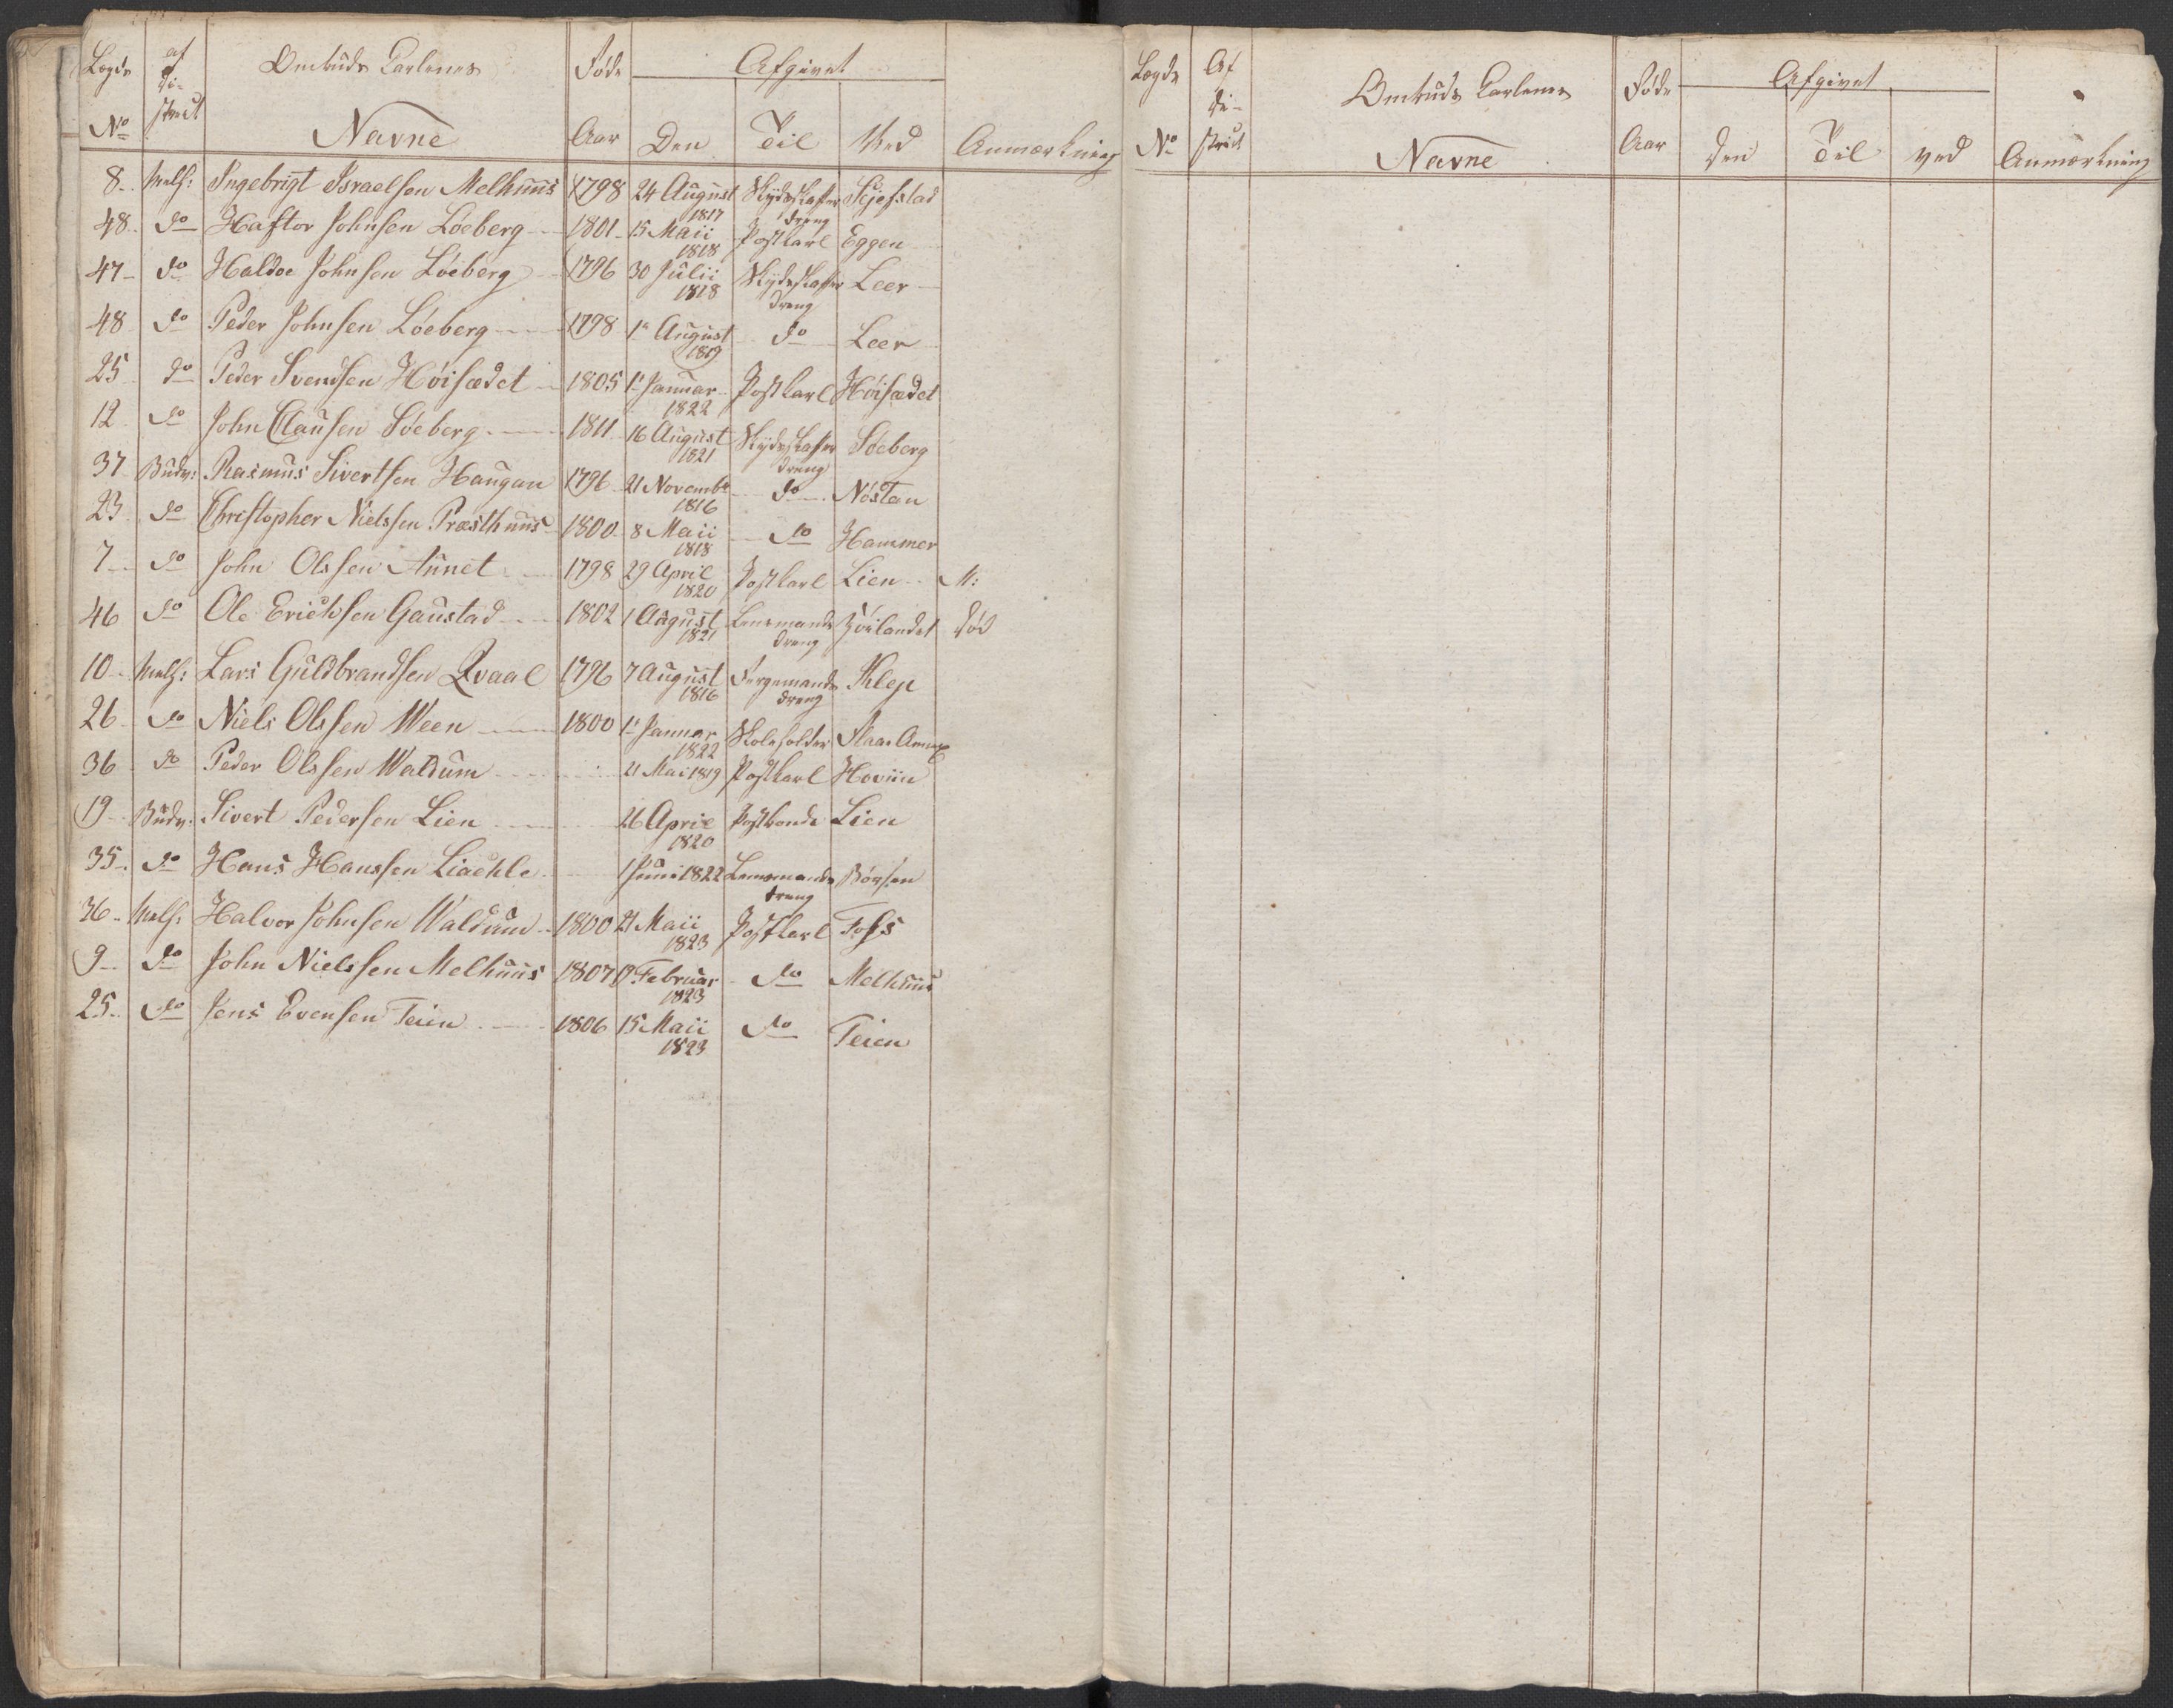 Legds af Di- Omtuds Karlenes Føde Afgivet
No strict Navne Aar Den Til Ved Anmærkning
8 Melh: Ingebrigt Israelsen Melhuus 1798 24 August 1817 Skydsskaffer dreng Skjefstad
48 do Haftor Johnsen Løeberg 1801 15 Maii 1818 Postkarl Eggen
47 do Haldoe Johnsen Løeberg 1796 30 Julii 1818 Skydsskaffer dreng Leer
48 do Peder Johnsen Løeberg 1798 1 August 1819 do Leer
25 do Peder Svendsen Høisædet 1805 1 Januar 1822 Postkarl Høisædet
12 do John Clausen Søeberg 1811 16 August 1821 Skydsskaffer dreng Søeberg
37 Budv: Rasmus Sivertsen Haugan 1796 21 Novembr 1816 do Nøstan
23 do Christopher Nielssen Præsthuus 1800 8 Maii 1818 do Hammer
7 do John Olssen Aunet 1798 29 April 1820 Postkarl Lien M:
46 do Ole Erichsen Gaustad 1802 1 August 1821 Lensmands dreng død
10 Melh: Lars Guldbrandsen Qvaal 1796 7 August 1816 Fergemands dreng Klep
26 do Niels Olssen Ween 1800 1 Januar 1822 Skoleholder Flaa Annex
36 do Peder Olssen Waldum 21 Mai 1819 Postkarl Hoviin
19 Budv: Sivert Pedersen Lien 26 April 1820 Postbonde Lien
35 do Hans Hanssen Liaehle 1 Juni 1822 Lensmands dreng Børsen
36 Melh: Halvor Johnsen Waldum 1800 21 Maii 1823 Postkarl Foss
9 do John Nielssen Melhuus 1807 17 Februar 1823 do Melhuus
25 do Jens Evensen Teien 1806 15 Maii 1823 do Teien
Legds Af Di- Omtuds Karlenes Føde Afgivet
No strict Navne Aar den Til ved Anmærkning